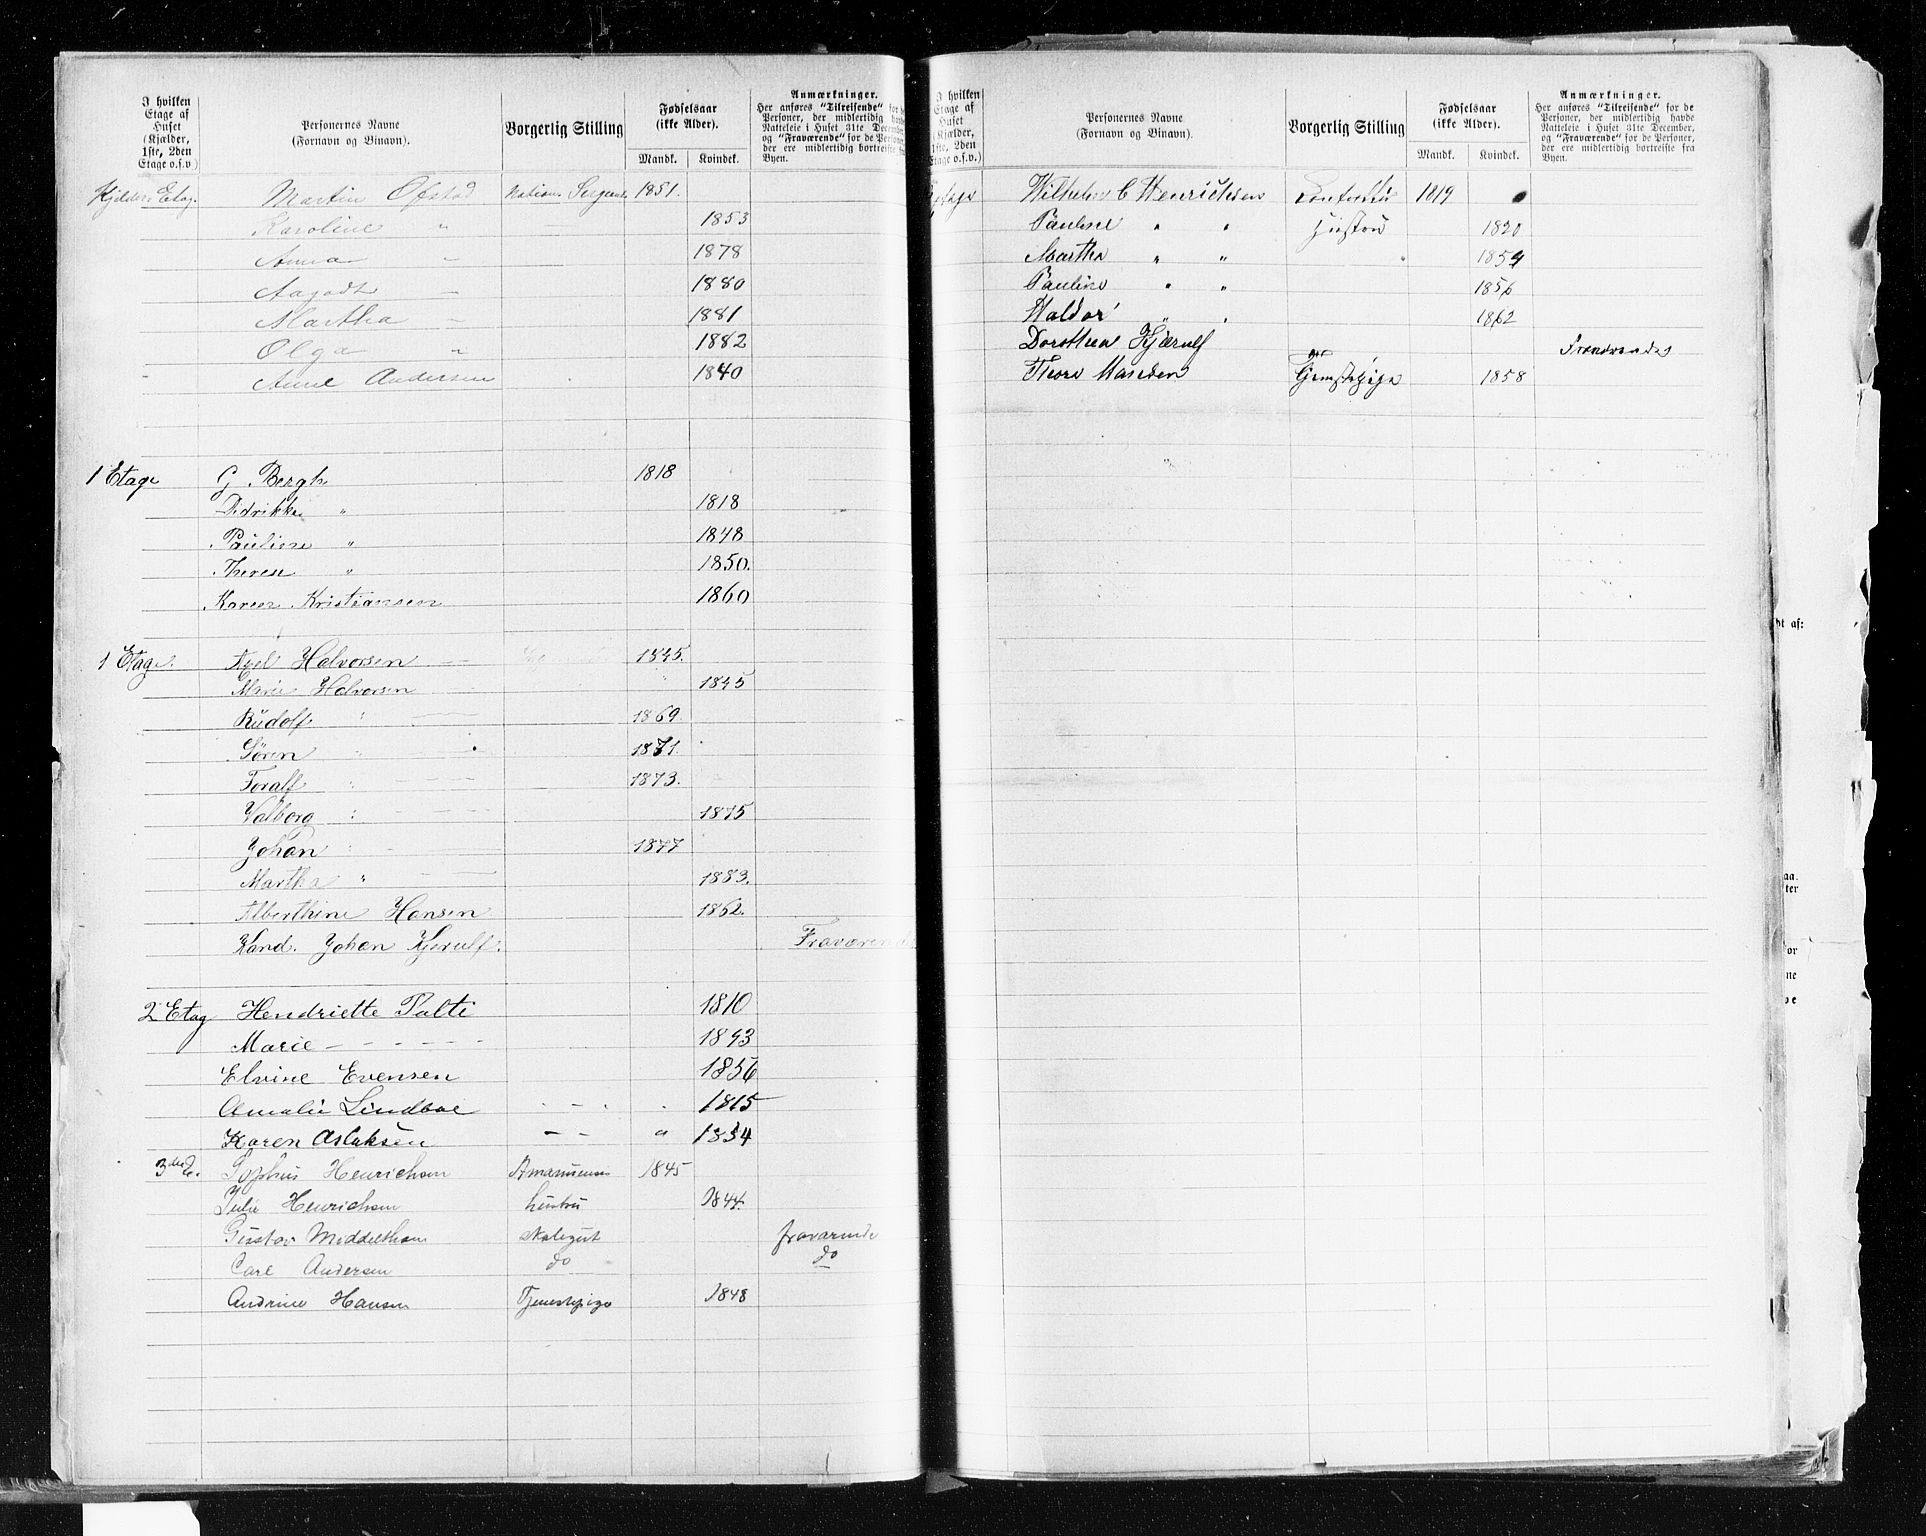 I hvilken
Etage af
Huset
(Kjælder,
1ste, 2den
Etage o.s.v.)
Personernes Navne
(Fornavn og Binavn).
Vorgerlig Stilling
Fødselsaar
(ikke Alder).
Mandk. Kvindek.
Anmærkninger.
Her anføres "Tilreisende" for de
Personer, der midlertidig havde
Natteleie i Huset 31te December,
og "Fraværende" for de Personer,
der ere midlertidig bortreiste fra
Byen.
Kjelder Etag. Martin Ofstad Nation. Sergeant 1851.
Karoline " 1853
Anna 1878
Aagodt 1880
Martha 1881
Olga " 1882
Anne Andersen 1840
1 Etage G. Bergh 1818
Didrikke " 1818
Pauline " 1848
Therese " 1850.
Karen Kristiansen 1860
1 Etage. Axel Halvorsen 1845.
Marie Halvorsen 1845
Rudolf " 1869.
Søren " 1871.
Toralf " 1873.
Valborg " 1875
Johan " 1877
Martha " 1883.
Alberthine Hansen 1862.
Kand. Johan Kjerulf. Fraværende
2 Etag Hendriette Palti 1810
Marie - - - - - 1843
Elvine Evensen 1856
Amalie Lindboe 1815
Karen Aslaksen " 1854
3die E. Sophus Henrichsen Amanuensis 1845
Julie Henrichsen hustru 1844.
Gustav Middelthon fraværende
Carl Andersen do do
Andrine Hansen Tjenestepige 1848
I hvilken
Etage af
Huset
(Kjælder,
1ste, 2den
Etage o.s.v.)
Personernes Navne
(Fornavn og Binavn).
Vorgerlig Stilling
Fødselsaar
(ikke Alder).
Mandk. Kvindek.
Anmærkninger.
Her anføres "Tilreisende" for de
Personer, der midlertidig havde
Natteleie i Huset 31te December,
og "Fraværende" for de Personer,
der ere midlertidig bortreiste fra
Byen.
Wilhelm C Henrichsen 1819
Pauline " " Hustru 1820
Martha " " 1854
Pauline " " 1856
Haldor " " 1862
Dorothea Kjærulf Fraværendes
Thora Madsen Tjenestepige 1858
dt af: